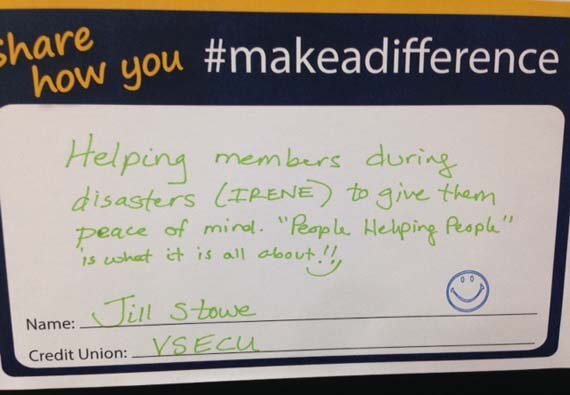 share
how you #makeadifference
Helping members during
disasters (IRENE) to give them
peace of mind. "People Helping People"
is what it is all about!!
Name: Jill Stowe
Credit Union: VSECU